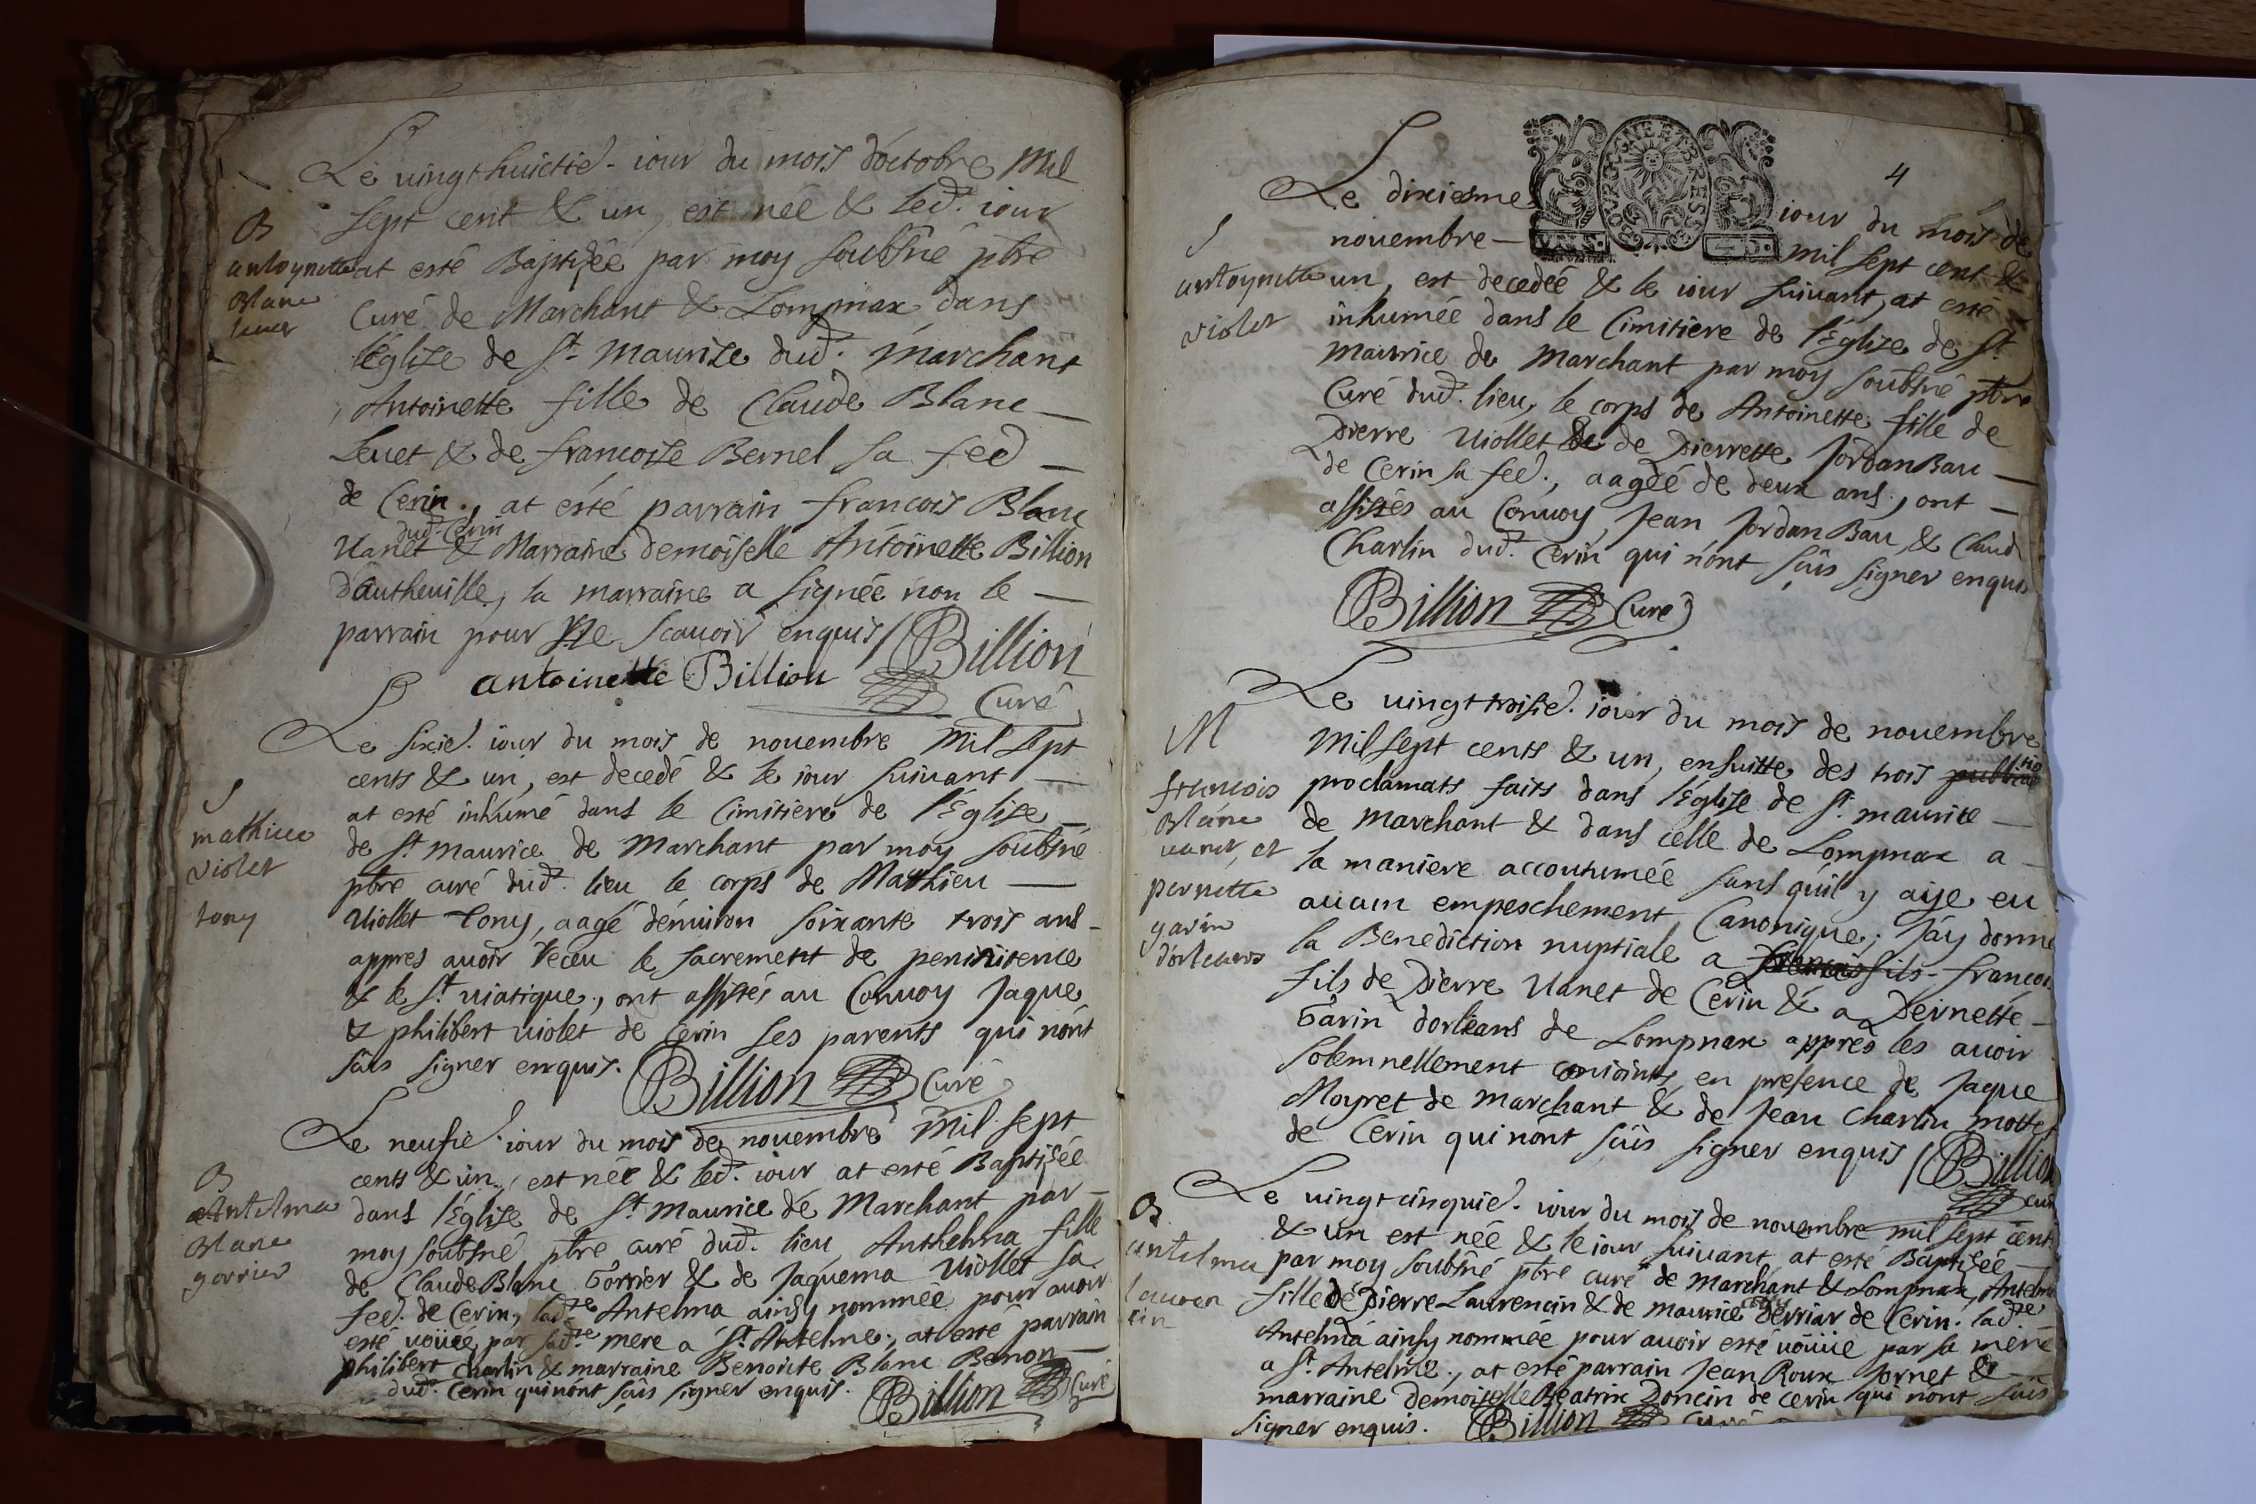 Le vingthuictiē. iour du mois d'octobre Mil
sept cent & un, est née & led. iour
B
antoynette
Blanc
leuet
at esté Baptisée par moy soubsné ptre
Curé de Marchant & Lompnax dans
l'église de St. Maurise dud. Marchant
Antoinette fille de Claude Blanc
Leuet & de francoise Bernel sa feē
de Cerin, at esté parrain francois Blanc
dud. Cerin
Vanet & Marraine demoiselle Antoinette Billion
d'autheuille, la marraine a signée non le
parrain pour ne scauoir enquis / Billion
antoinette Billion
Curé
Le sixiē. iour du mois de nouembre Mil sept
cents & un, est decedé & le iour suiuant
S
mathieu
violet
tony
at esté inhumé dans le Cimitiere de l'Eglise
de St. Maurice de Marchant par moy soubsné
ptre curé dud. lieu le corps de Mathieu
Viollet Tony, aagé d'enuiron soixante trois ans
appres auoir receu le sacrement de penitence
& le St. viatique, ont assistés au Conuoy Jaque
& philibert violet de Cerin ses parents qui n'ont
sûs signer enquis. Billion Curé
Le neufiē. iour du mois de nouembre Mil sept
cents & un, est née & led. iour at esté Baptisée
B
Antelma
Blanc
gorrier
dans l'Eglise de St. Maurice de Marchant par
moy soubsné ptre curé dud. lieu Anthelma fille
de Claude Blanc Gorrier & de Jaquema Viollet sa
feē. de Cerin, ladte Antelma ainsy nommée pour auoir
esté voüée par sadte mere a St. Antelme, at esté parrain
philibert Charlin & marraine Benoite Blanc Benon
dud. Cerin qui n'ont sûs signer enquis. Billion Curé
4
BOURGOGNE ET BRESSE
Le dixiesme iour du mois de
nouembre mil sept cent &
S
antoynette
violet
un, est decedée & le iour suiuant, at esté
inhumée dans le Cimitiere de l'Eglise de St.
Maurice de Marchant par moy soubsné ptre
Curé dud. lieu, le corps de Antoinette fille de
Pierre Viollet & de Pierrette JordanBau
de Cerin sa feē., aagée de deux ans, ont
assistés au Conuoy, Jean JordanBau & Claud
Charlin dud. Cerin qui n'ont sûs signer enquis
Billion Curé
Le vingttroisiē. iour du mois de nouembre
Mil sept cents & un, ensuitte des trois
M
francois
Blanc
vanet, et
pernette
garin
d'orleans
proclamats faits dans l'Eglise de St. maurice
de Marchant & dans celle de Lompnax a
la maniere accoutumée sans quil y aije eu
aucun empeschement Canonique; J'ay donné
la Benediction nuptiale a francois
fils de Pierre Vanet de Cerin & a Pernette
Garin dorleans de Lompnax appres les auoir
solemnellement conioints, en presence de Jaque
Moyret de Marchant & de Jean Charlin mottet
de Cerin qui n'ont sûs signer enquis / Billion
Curé
Le vingtcinquiē. iour du mois de nouembre mil sept cent
& un est née & le iour suiuant, at esté Baptisée
B
antelma
lauren
cin
par moy soubsné ptre curé de Marchant & Lompnax, Antelma
fille de Pierre Laurencin & de maurice Berriar de Cerin. ladte
Antelma ainsy nommée pour auoir esté voüée par sa mere
a St. Antelme, at esté parrain Jean Roux Jornet &
marraine Demoiselle Beatrix Doncin de cerin qui n'ont sûs
signer enquis. Billion Curé